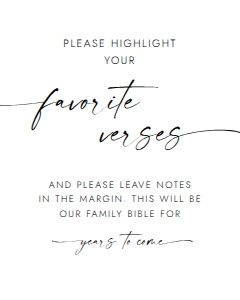 PLEASE HIGHLIGHT
YOUR
favorite
verses
AND PLEASE LEAVE NOTES
IN THE MARGIN. THIS WILL BE
OUR FAMILY BIBLE FOR
years to come